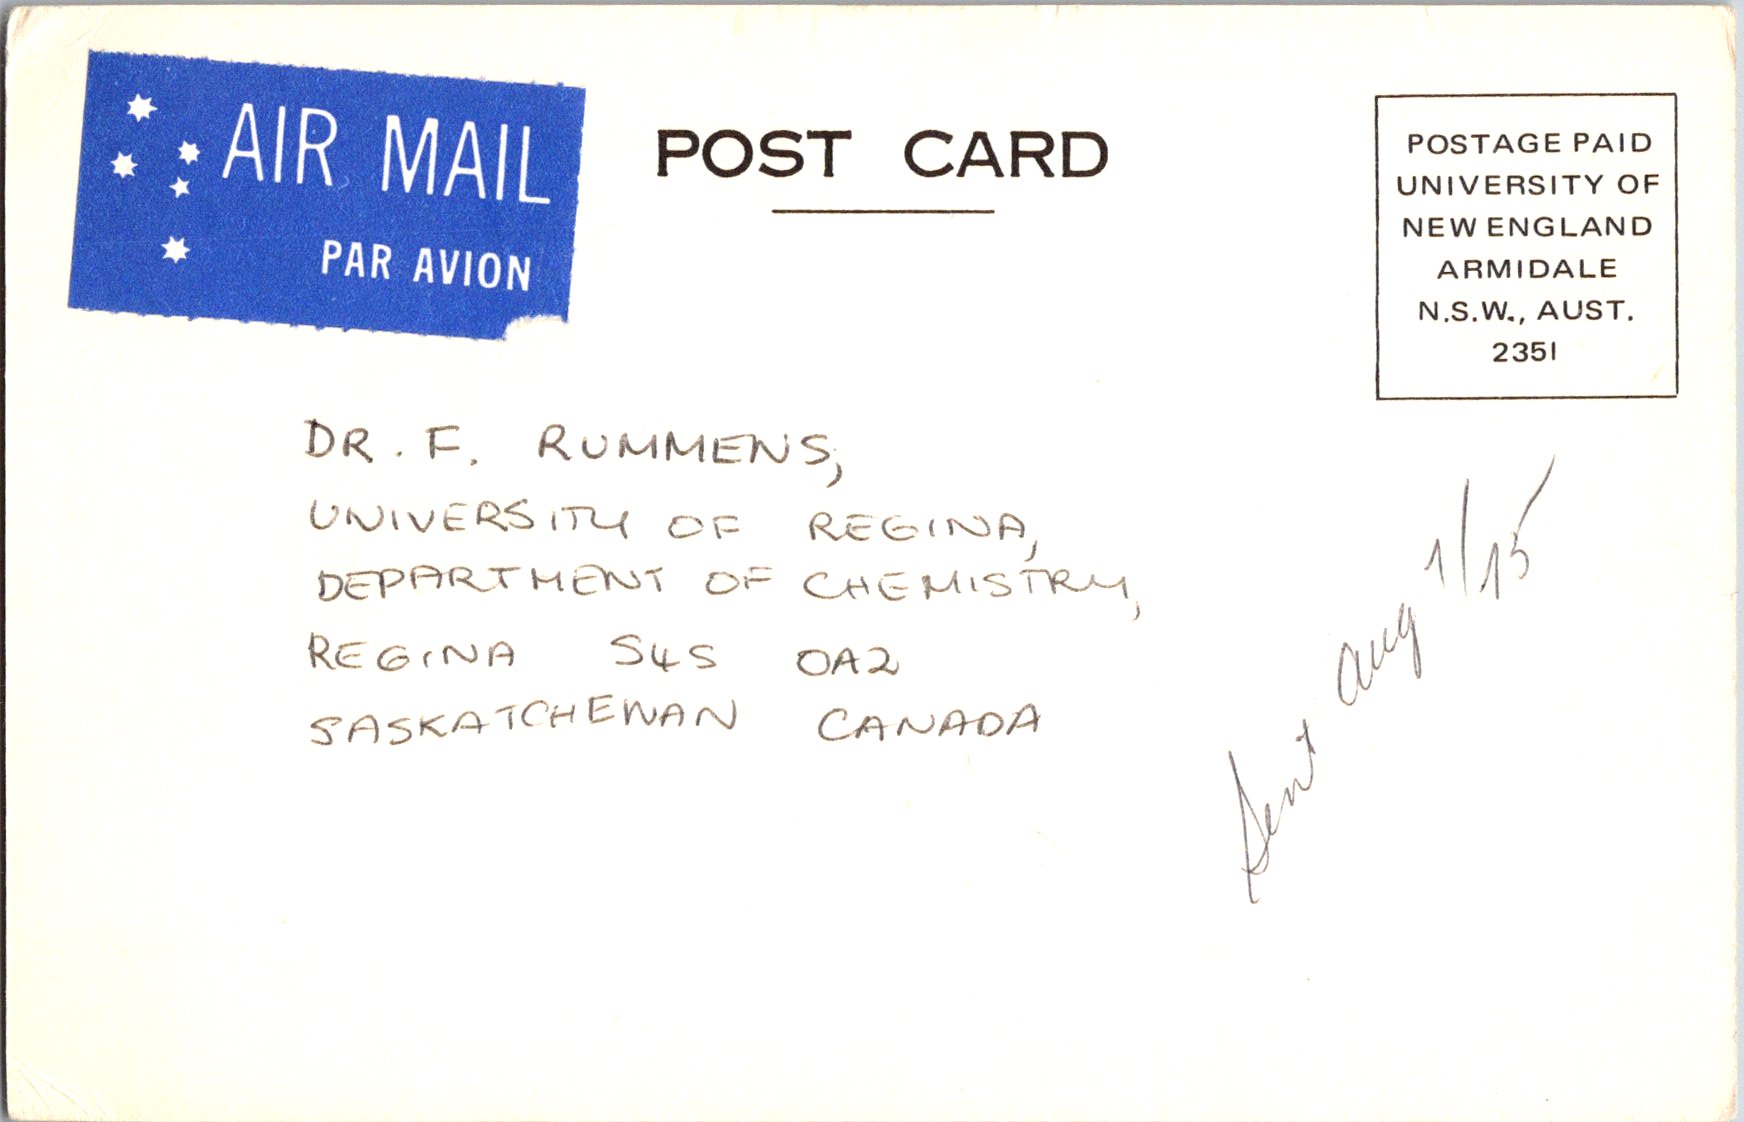 AIR MAIL
PAR AVION
POST CARD
POSTAGE PAID
UNIVERSITY OF
NEW ENGLAND
ARMIDALE
N.S.W., AUST.
2351
DR. F. RUMMENS,
UNIVERSITY OF REGINA,
DEPARTMENT OF CHEMISTRY,
REGINA S4S 0A2
SASKATCHEWAN CANADA
Sent Aug 1/75